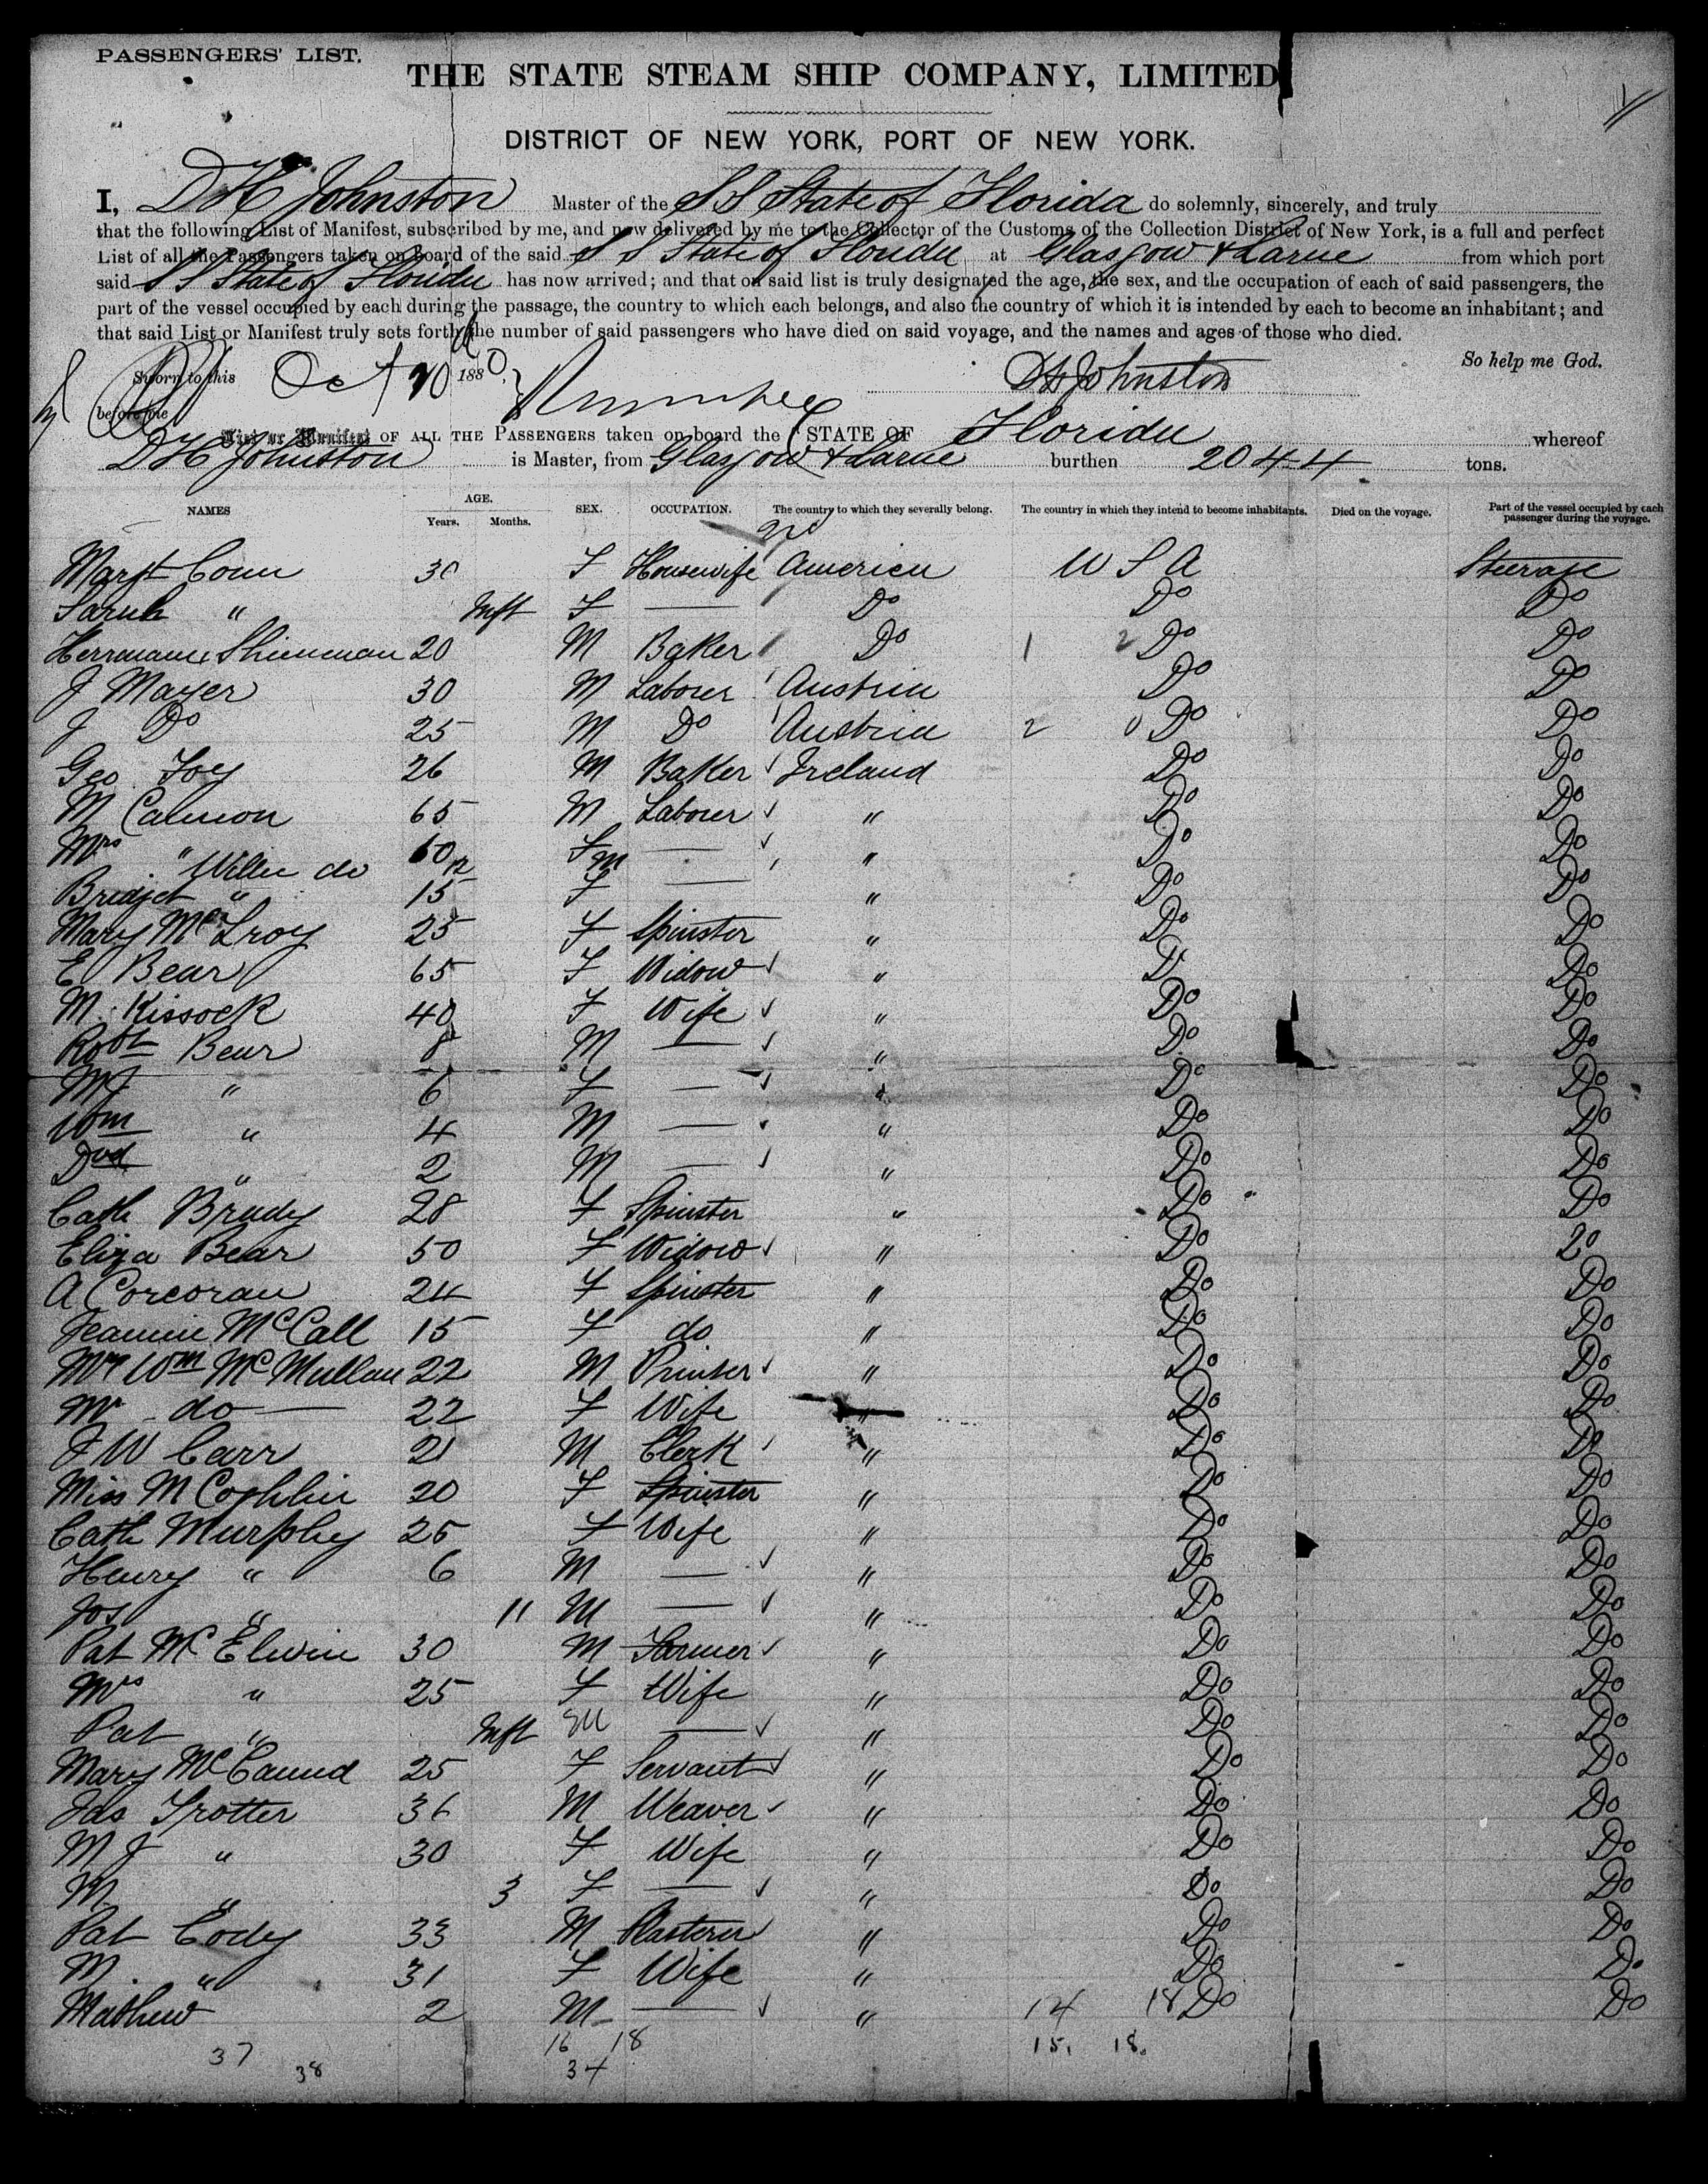 PASSENGERS' LIST.
THE STATE STEAM SHIP COMPANY, LIMITED
DISTRICT OF NEW YORK, PORT OF NEW YORK.
I, D H Johnston Master of the S S State of Florida do solemnly, sincerely, and truly
that the following List of Manifest, subscribed by me, and now delivered by me to the Collector of the Customs of the Collection District of New York, is a full and perfect
List of all the Passengers taken on board of the said S S State of Florida at Glasgow & Larne from which port
said S S State of Florida has now arrived; and that on said list is truly designated the age, the sex, and the occupation of each of said passengers, the
part of the vessel occupied by each during the passage, the country to which each belongs, and also the country of which it is intended by each to become an inhabitant; and
that said List or Manifest truly sets forth the number of said passengers who have died on said voyage, and the names and ages of those who died.
So help me God.
Sworn to this Oct 1880 D H Johnston
before me
List or Manifest OF ALL THE PASSENGERS taken on board the STATE OF Florida whereof
D H Johnston is Master, from Glasgow & Larne burthen 2044 tons.
NAMES AGE. Years. Months. SEX. OCCUPATION. The country to which they severally belong. The country in which they intend to become inhabitants. Died on the voyage. Part of the vessel occupied by each passenger during the voyage.
Margt Conn 30 F Housewife America U S A Steerage
Sarah " Inft F — Do Do Do
Herrmann Shienman 20 M Baker Do 1 2 Do Do
J Mayer 30 M Laborer Austria Do Do
J Do 25 M Do Austria 2 0 Do Do
Geo Foy 26 M Baker Ireland Do Do
M Cannon 65 M Laborer " Do Do
Mrs " 60 F — " Do Do
Willie do 12 M
Bridget " 15 F — " Do Do
Mary McLroy 25 F Spinster " Do Do
E Bear 65 F Widow " Do Do
M. Kissock 40 F Wife " Do Do
Robt Bear 8 M — " Do Do
M J " 6 F — " Do Do
Wm " 4 M — " Do Do
Dvd " 2 M — " Do Do
Cath Brady 28 F Spinster " Do Do
Eliza Bear 50 F Widow " Do Do
A Corcoran 24 F Spinster " Do Do
Jeannie McCall 15 F do " Do Do
Mr Wm McMullan 22 M Printer " Do Do
Mr do — 22 F Wife " Do Do
J W Carr 21 M Clerk " Do Do
Miss M Coghlin 20 F Spinster " Do Do
Cath Murphy 25 F Wife " Do Do
Henry " 6 M — " Do Do
Jos " 11 M — " Do Do
Pat McElwin 30 M Farmer " Do Do
Mrs " 25 F Wife " Do Do
Pat " Inft M — " Do Do
Mary McCaund 25 F Servant " Do Do
Jas Trotter 36 M Weaver " Do Do
M J " 30 F Wife " Do Do
M " 3 F — " Do Do
Pat Cody 33 M Plasterer " Do Do
M. " 31 F Wife " Do Do
Mathew 2 M — " 14 18 Do Do
37 16 18 15. 18.
38 34